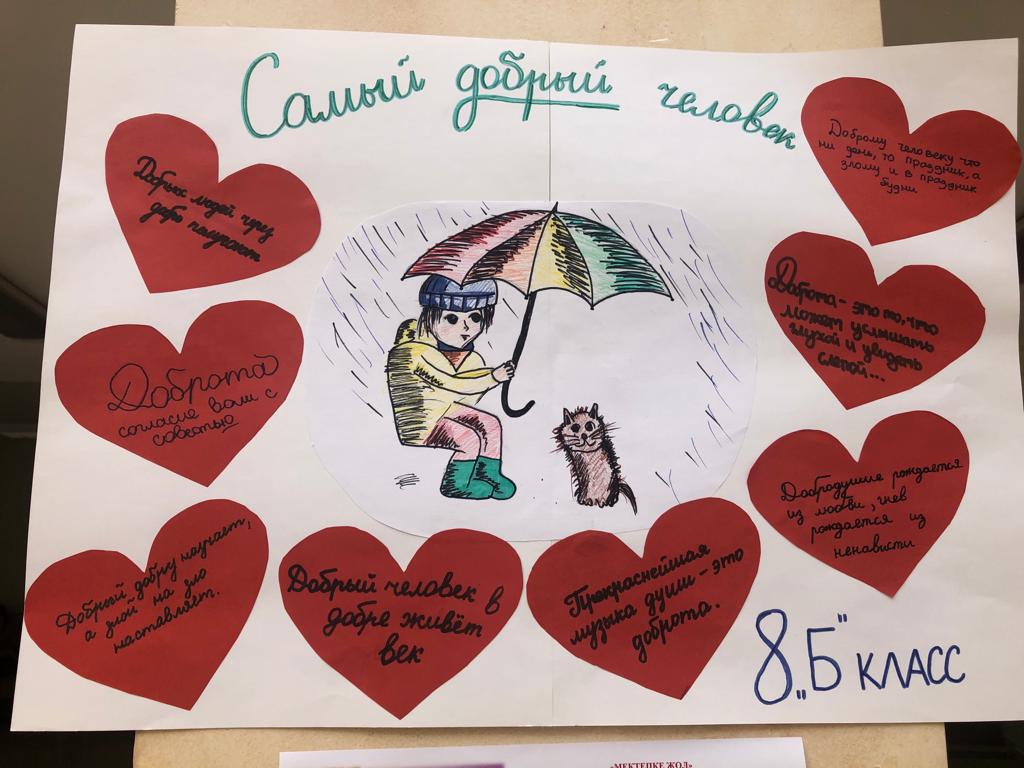 Самый добрый человек
Добрых людей чту
добро получают
Доброму человеку что
ни день, то праздник, а
злому и в праздник
будни
Доброта
согласие воли с
совестью
Доброта - это то, что
может услышать
глухой и увидеть
слепой...
Добродушие рождается
из любви, гнев
рождается из
ненависти
Добрый добру научает,
а злой на зло
наставляет.
Добрый человек в
добре живёт
век
Прекраснейшая
музыка души - это
доброта.
8 „Б" класс
«МЕКТЕПКЕ ЖОЛ»